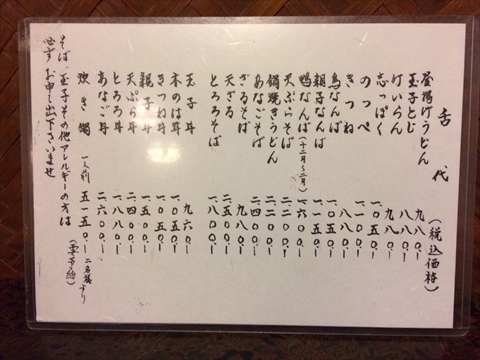 舌代
(税込価格)
釜揚げうどん 九八〇.-
玉子とじ 八八〇.-
けいらん 九八〇.-
志っぽく 一〇五〇.-
のっぺ
きつね 八八〇.-
鳥なんば
親子なんば
鴨なんば(十二月〜二月) 一六〇〇.-
天ぷらそば
あなごそば
鍋焼きうどん
ざるそば 九八〇.-
天ざる
とろろそば 一八〇〇.-
玉子丼 九六〇.-
木のは丼 一〇五〇.-
きつね丼 一〇五〇.-
親子丼 一一五〇.-
天ぷら丼 二四〇〇.-
とろろ丼 一八八〇.-
あなご丼 二六〇〇.-
炊き鍋 一人前 五一五〇.- 二名様より (要予約)
そば、玉子その他アレルギーの方は
必ずお申し出下さいませ